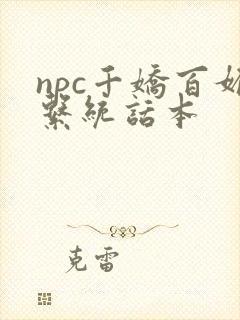 npc千嬌百媚
繫統話本
克雷